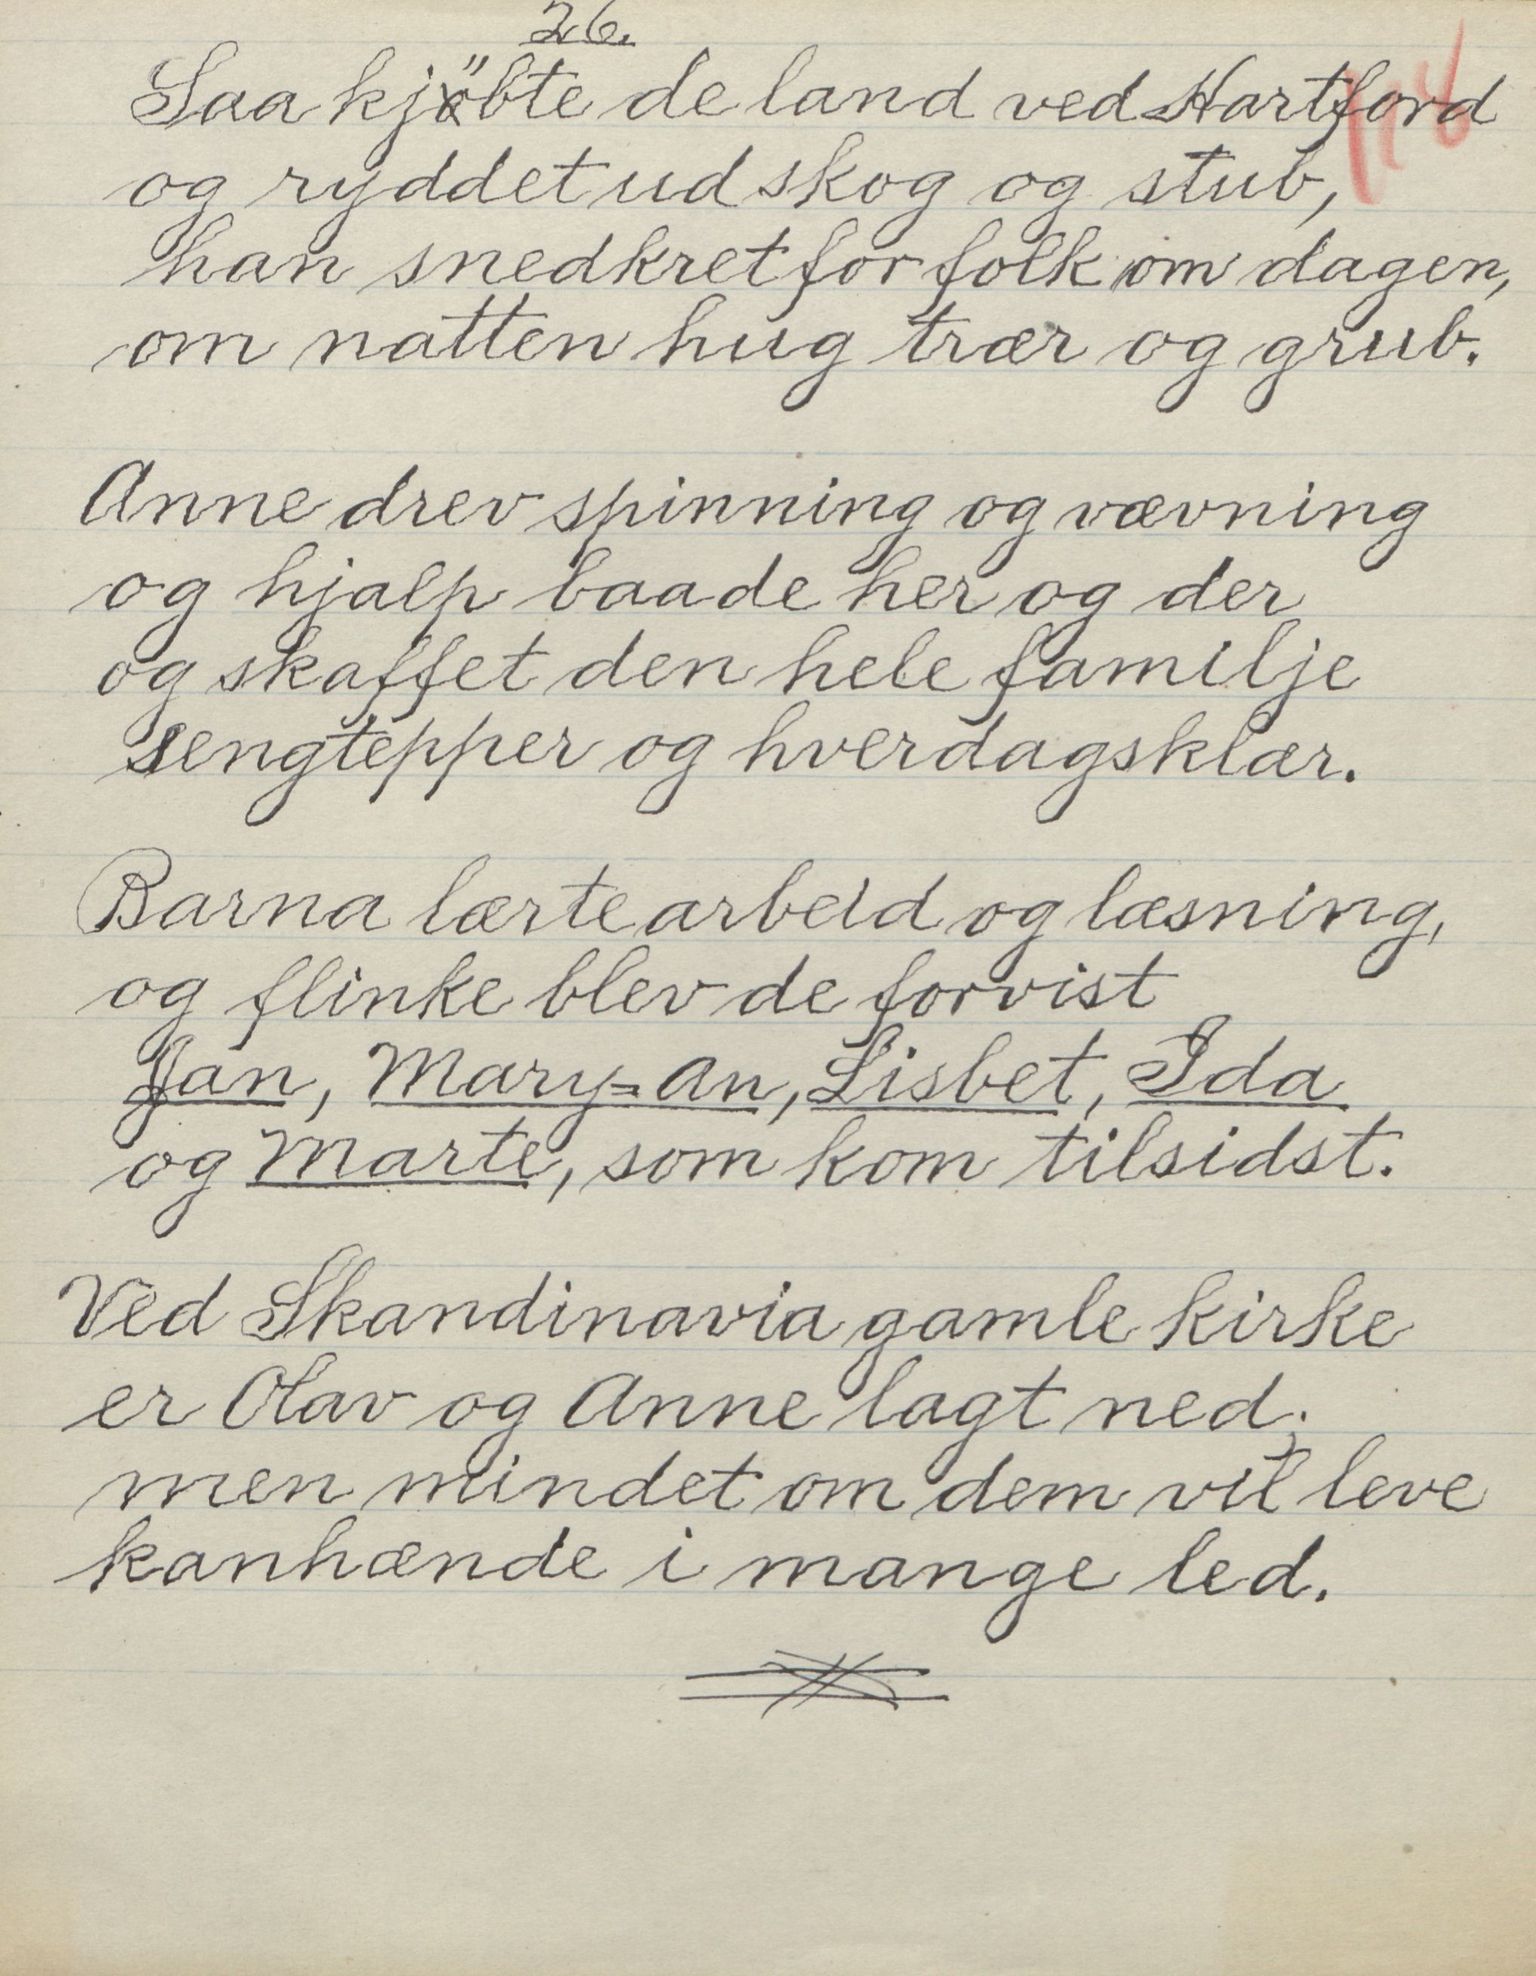 26.
118
Saa kjöbte de land ved Hartford
og ryddet ud skog og stub,
han snedkret for folk om dagen,
om natten hug trær og grub.
Anne drev spinning og vævning
og hjalp baade her og der
og skaffet den hele familje
sengtepper og hverdagsklær.
Barna lærte arbeid og læsning,
og flinke blev de forvist
Jan, Mary=An, Lisbet, Ida
og Marte, som kom tilsidst.
Ved Skandinavia gamle kirke
er Olav og Anne lagt ned;
men mindet om dem vil leve
kanhænde i mange led.